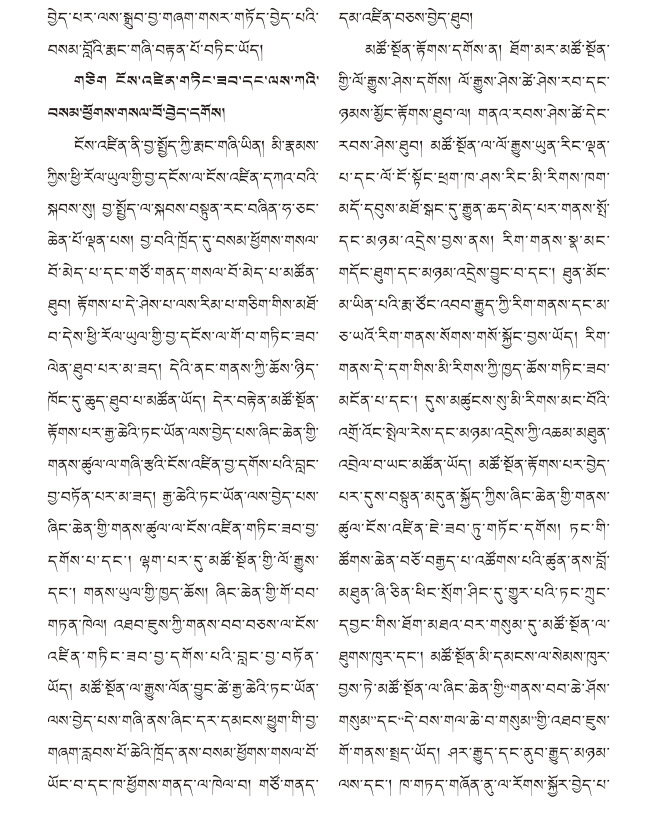 བྱེད་པར་ལས་སྒྲུབ་བྱ་གཞག་གསར་གཏོད་བྱེད་པའི་
བསམ་བློའི་རྨང་གཞི་བརྟན་པོ་བཏིང་ཡོད།
གཅིག ངོས་འཛིན་གཏིང་ཟབ་དང་ལས་ཀའི་
བསམ་ཕྱོགས་གསལ་པོ་བྱེད་དགོས།
ངོས་འཛིན་ནི་བྱ་སྤྱོད་ཀྱི་རྨང་གཞི་ཡིན། མི་རྣམས་
ཀྱིས་ཕྱི་རོལ་ཡུལ་གྱི་བྱ་དངོས་ལ་ངོས་འཛིན་དཀའ་བའི་
སྐབས་སུ། བྱ་སྤྱོད་ལ་སྐབས་བསྟུན་རང་བཞིན་ཧ་ཅང་
ཆེན་པོ་ལྡན་པས། བྱ་བའི་ཁྲོད་དུ་བསམ་ཕྱོགས་གསལ་
པོ་མེད་པ་དང་གཙོ་གནད་གསལ་པོ་མེད་པ་མཚོན་
ཐུབ། རྟོགས་པ་དེ་ཤེས་པ་ལས་རིམ་པ་གཅིག་གིས་མཐོ་
བ་དེས་ཕྱི་རོལ་ཡུལ་གྱི་བྱ་དངོས་ལ་གོ་བ་གཏིང་ཟབ་
ལེན་ཐུབ་པར་མ་ཟད། དེའི་ནང་གནས་ཀྱི་ཆོས་ཉིད་
ཁོང་དུ་ཆུད་ཐུབ་པ་མཚོན་ཡོད། དེར་བརྟེན་མཚོ་སྔོན་
རྟོགས་པར་རྒྱ་ཆེའི་ཏང་ཡོན་ལས་བྱེད་པས་ཞིང་ཆེན་གྱི་
གནས་ཚུལ་ལ་གཞི་རྩའི་ངོས་འཛིན་བྱ་དགོས་པའི་བླང་
བྱ་བཏོན་པར་མ་ཟད། རྒྱ་ཆེའི་ཏང་ཡོན་ལས་བྱེད་པས་
ཞིང་ཆེན་གྱི་གནས་ཚུལ་ལ་ངོས་འཛིན་གཏིང་ཟབ་བྱ་
དགོས་པ་དང༌། ལྷག་པར་དུ་མཚོ་སྔོན་གྱི་ལོ་རྒྱུས་
དང༌། གནས་ཡུལ་གྱི་ཁྱད་ཆོས། ཞིང་ཆེན་གྱི་གོ་བབ་
གཏན་ཁེལ། འཐབ་ཇུས་ཀྱི་གནས་བབ་བཅས་ལ་ངོས་
འཛིན་གཏིང་ཟབ་བྱ་དགོས་པའི་བླང་བྱ་བཏོན་
ཡོད། མཚོ་སྔོན་ལ་རྒྱུས་ལོན་བྱུང་ཚེ་རྒྱ་ཆེའི་ཏང་ཡོན་
ལས་བྱེད་པས་གཞི་ནས་ཞིང་དར་དམངས་ཕྱུག་གི་བྱ་
གཞག་རླབས་པོ་ཆེའི་ཁྲོད་ནས་བསམ་ཕྱོགས་གསལ་པོ་
ཡོང་བ་དང་ཁ་ཕྱོགས་གནད་ལ་ཁེལ་བ། གཙོ་གནད་
དམ་འཛིན་བཅས་བྱེད་ཐུབ།
མཚོ་སྔོན་རྟོགས་དགོས་ན། ཐོག་མར་མཚོ་སྔོན་
གྱི་ལོ་རྒྱུས་ཤེས་དགོས། ལོ་རྒྱུས་ཤེས་ཚེ་ཤེས་རབ་དང་
ཉམས་མྱོང་རྟོགས་ཐུབ་ལ། གནའ་རབས་ཤེས་ཚེ་དེང་
རབས་ཤེས་ཐུབ། མཚོ་སྔོན་ལ་ལོ་རྒྱུས་ཡུན་རིང་ལྡན་
པ་དང་ལོ་ངོ་སྟོང་ཕྲག་ཁ་ཤས་རིང་མི་རིགས་ཁག་
མདོ་དབུས་མཐོ་སྒང་དུ་རྒྱུན་ཆད་མེད་པར་གནས་སྤོ་
དང་མཉམ་འདྲེས་བྱས་ནས། རིག་གནས་སྣ་མང་
གདོང་ཐུག་དང་མཉམ་འདྲེས་བྱུང་བ་དང༌། ཐུན་མོང་
མ་ཡིན་པའི་རྨ་ཙོང་འབབ་རྒྱུད་ཀྱི་རིག་གནས་དང་མ་
ཅ་ཡའོ་རིག་གནས་སོགས་གསོ་སྐྱོང་བྱས་ཡོད། རིག་
གནས་དེ་དག་གིས་མི་རིགས་ཀྱི་ཁྱད་ཆོས་གཏིང་ཟབ་
མངོན་པ་དང༌། དུས་མཚུངས་སུ་མི་རིགས་མང་པོའི་
འགྲོ་འོང་སྤེལ་རེས་དང་མཉམ་འདྲེས་ཀྱི་འཆམ་མཐུན་
འབྲེལ་བ་ཡང་མཚོན་ཡོད། མཚོ་སྔོན་རྟོགས་པར་བྱེད་
པར་དུས་བསྟུན་མདུན་སྐྱོད་ཀྱིས་ཞིང་ཆེན་གྱི་གནས་
ཚུལ་ངོས་འཛིན་ཇེ་ཟབ་ཏུ་གཏོང་དགོས། ཏང་གི་
ཚོགས་ཆེན་བཅོ་བརྒྱད་པ་འཚོགས་པའི་ཚུན་ནས་བློ་
མཐུན་ཞི་ཅིན་ཕིང་སྲོག་ཤིང་དུ་གྱུར་པའི་ཏང་ཀྲུང་
དབྱང་གིས་ཐོག་མཐའ་བར་གསུམ་དུ་མཚོ་སྔོན་ལ་
ཐུགས་ཁུར་དང༌། མཚོ་སྔོན་མི་དམངས་ལ་སེམས་ཁུར་
བྱས་ཏེ་མཚོ་སྔོན་ལ་ཞིང་ཆེན་གྱི“གནས་བབ་ཆེ་ཤོས་
གསུམ”དང“དེ་བས་གལ་ཆེ་བ་གསུམ”གྱི་འཐབ་ཇུས་
གོ་གནས་སྤྲད་ཡོད། ཤར་རྒྱུད་དང་ནུབ་རྒྱུད་མཉམ་
ལས་དང༌། ཁ་གཏད་གཞོན་ནུ་ལ་རོགས་སྐྱོར་བྱེད་པ་